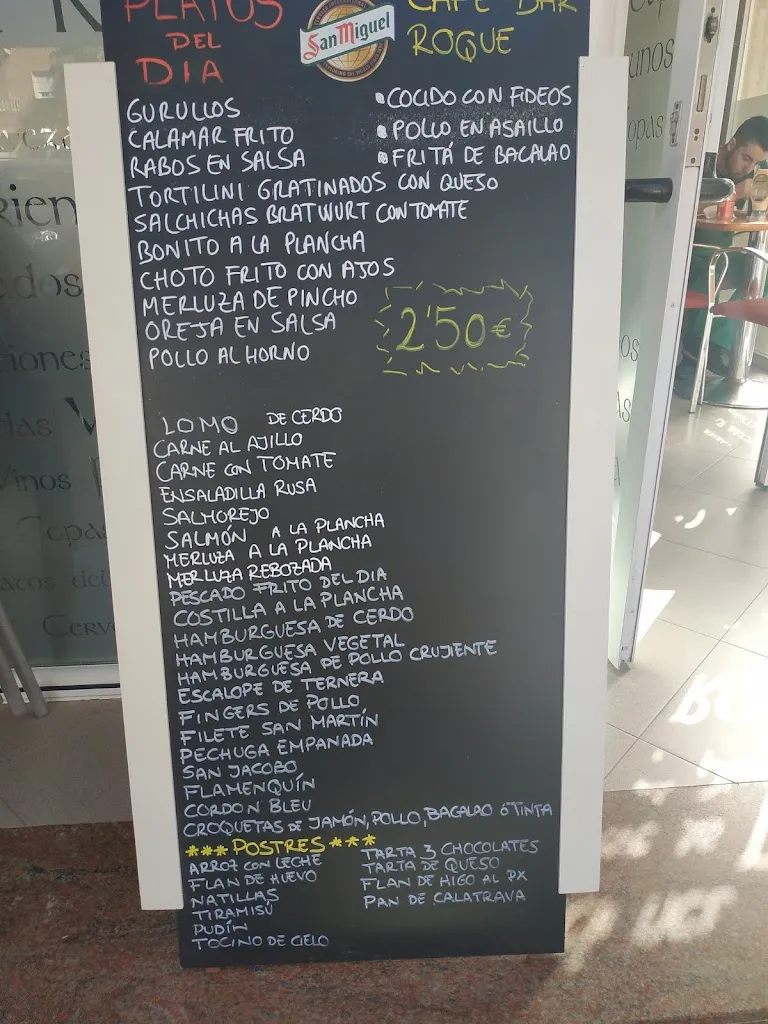 PLATOS
DEL
DIA
San Miguel
CAFE BAR
ROQUE
GURULLOS
CALAMAR FRITO
RABOS EN SALSA
• COCIDO CON FIDEOS
• POLLO EN ASAILLO
• FRITÁ DE BACALAO
TORTILINI GRATINADOS CON QUESO
SALCHICHAS BRATWURT CON TOMATE
BONITO A LA PLANCHA
CHOTO FRITO CON AJOS
MERLUZA DE PINCHO
OREJA EN SALSA
POLLO AL HORNO
2'50€
LOMO DE CERDO
CARNE AL AJILLO
CARNE CON TOMATE
ENSALADILLA RUSA
SALMOREJO
SALMÓN A LA PLANCHA
MERLUZA A LA PLANCHA
MERLUZA REBOZADA
PESCADO FRITO DEL DIA
COSTILLA A LA PLANCHA
HAMBURGUESA DE CERDO
HAMBURGUESA VEGETAL
HAMBURGUESA DE POLLO CRUJIENTE
ESCALOPE DE TERNERA
FINGERS DE POLLO
FILETE SAN MARTÍN
PECHUGA EMPANADA
SAN JACOBO
FLAMENQUÍN
CORDON BLEU
CROQUETAS DE JAMÓN, POLLO, BACALAO Ó TINTA
*** POSTRES ***
ARROZ CON LECHE
FLAN DE HUEVO
NATILLAS
TIRAMISÚ
PUDÍN
TOCINO DE CIELO
TARTA 3 CHOCOLATES
TARTA DE QUESO
FLAN DE HIGO AL PX
PAN DE CALATRAVA
Vinos
Copas